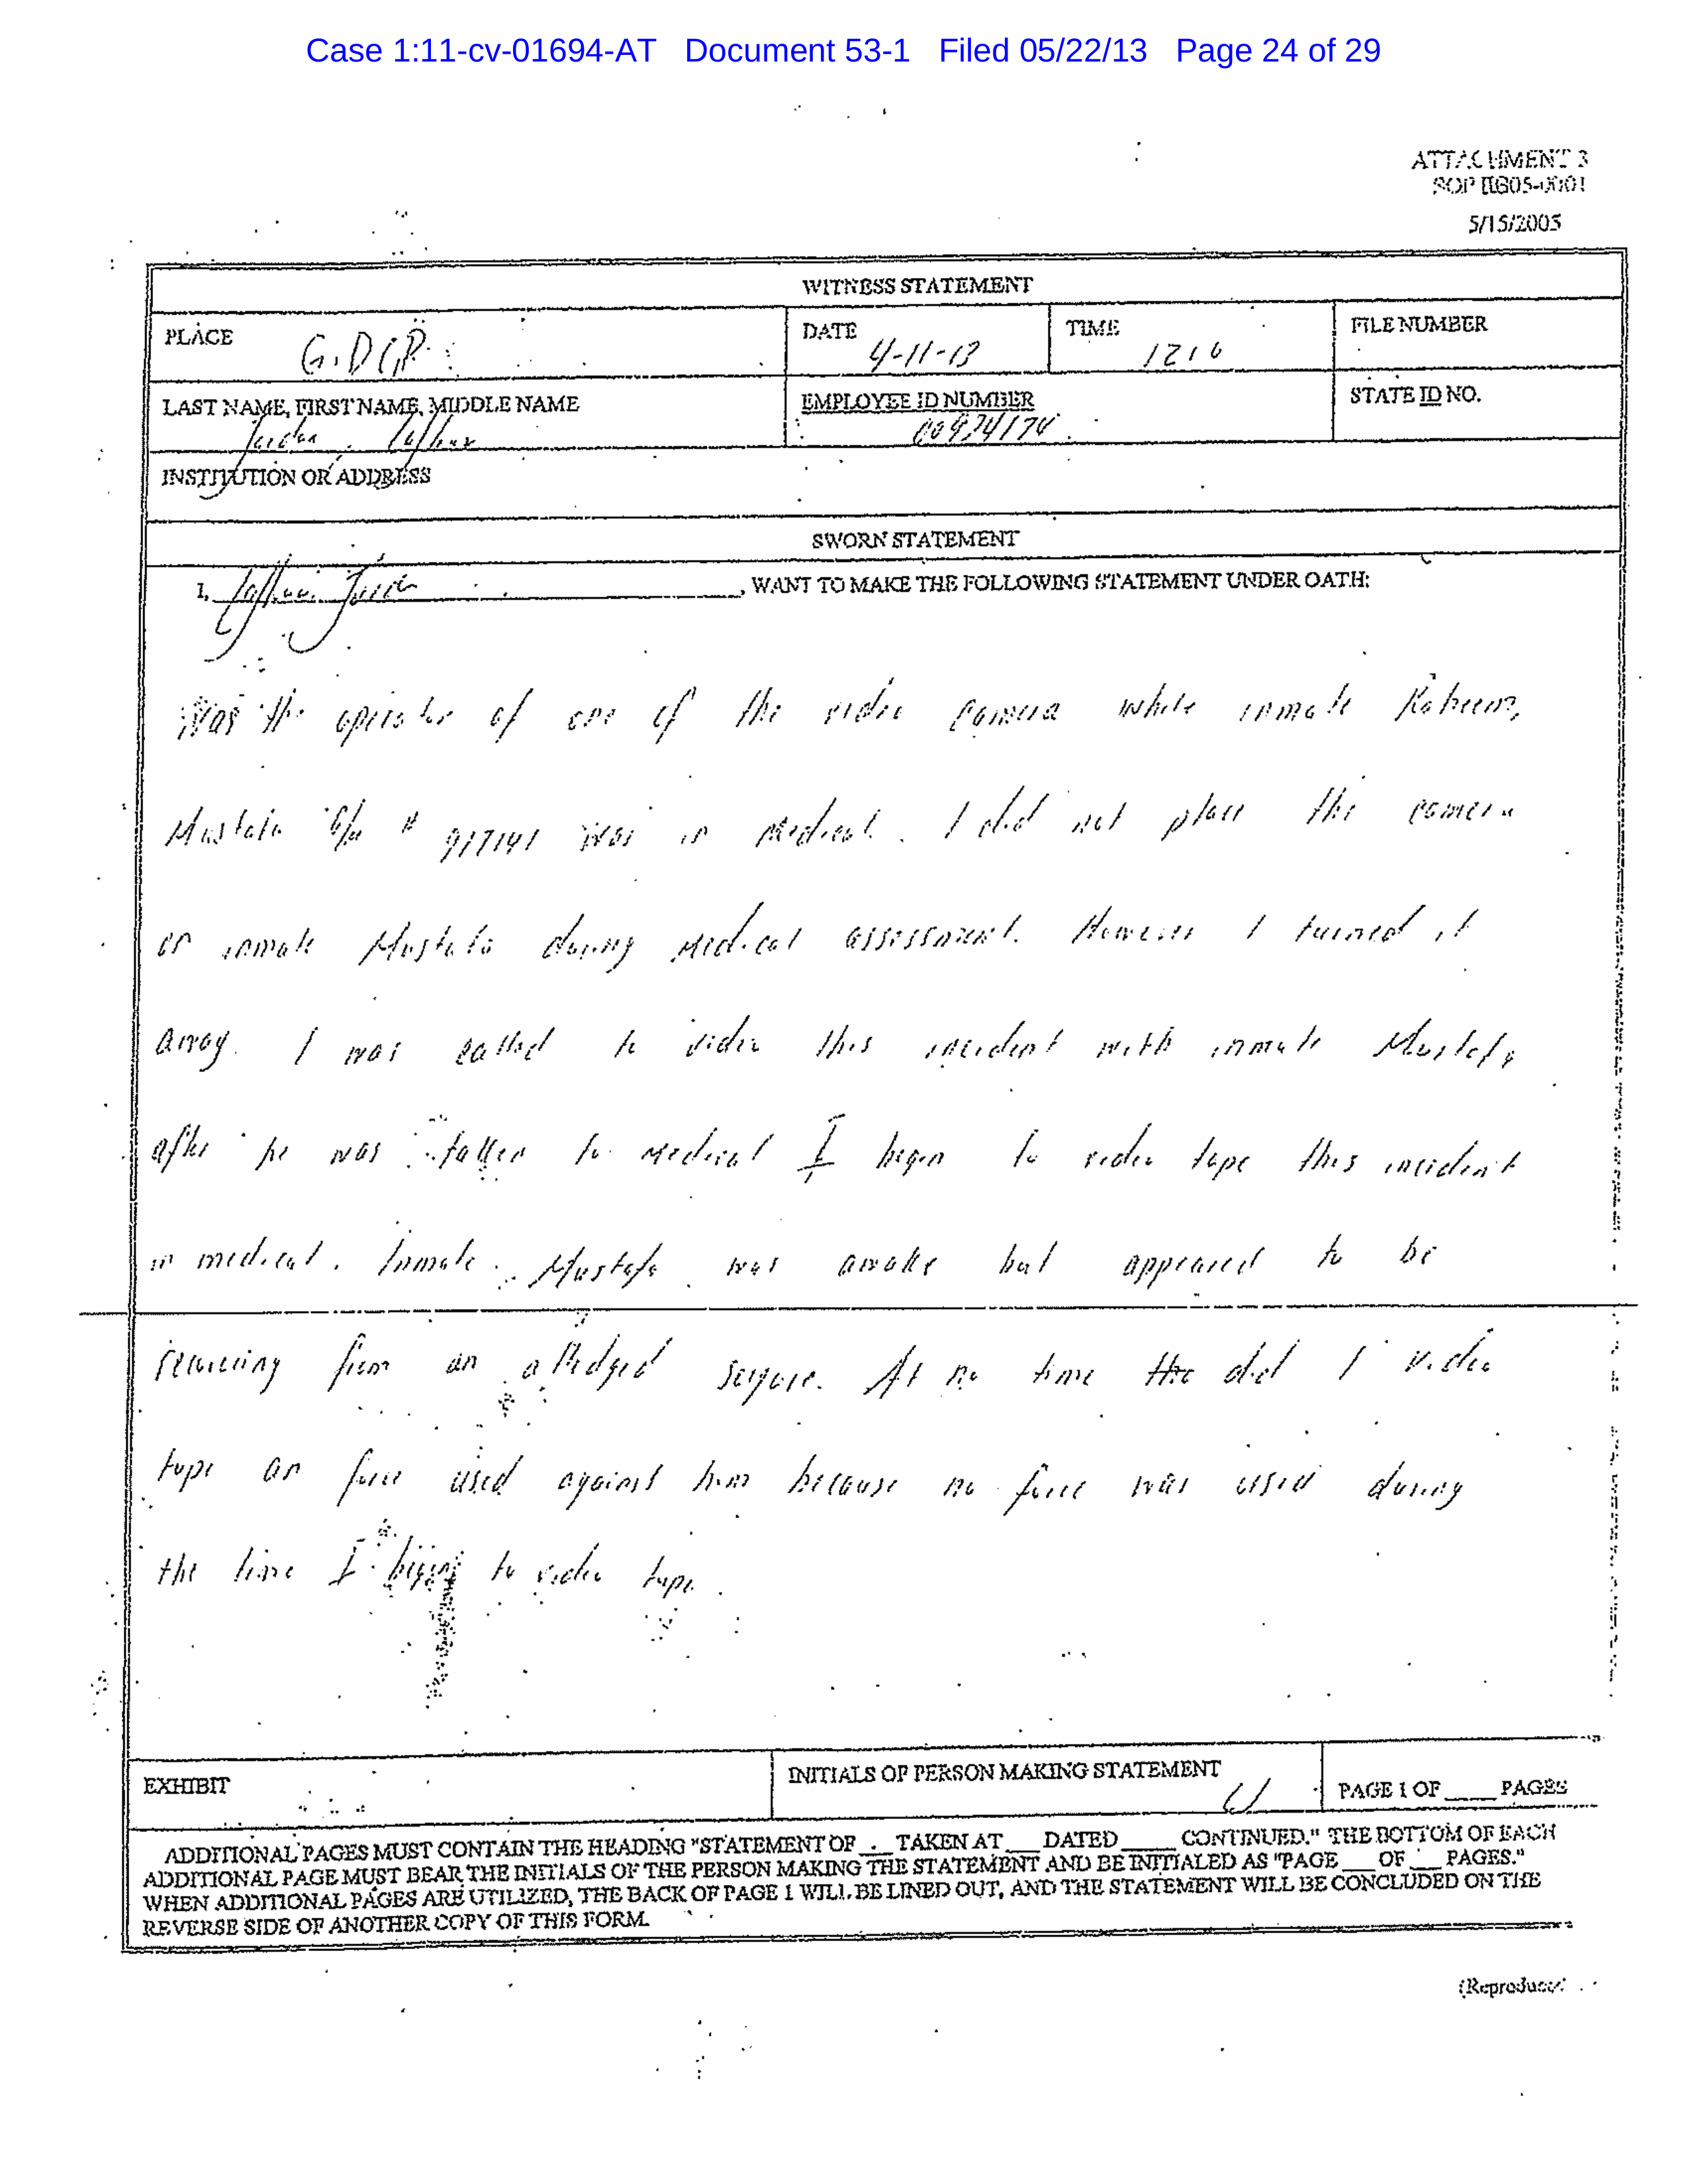 Case 1:11-cv-01694-AT Document 53-1 Filed 05/22/13 Page 24 of 29
ATTACHMENT 3
SOP IIB05-0001
5/15/2003
WITNESS STATEMENT
PLACE G.D.C.P. DATE 4-11-13 TIME 1210 FILE NUMBER
LAST NAME, FIRST NAME, MIDDLE NAME EMPLOYEE ID NUMBER STATE ID NO.
Jordan
INSTITUTION OR ADDRESS
SWORN STATEMENT
I, , WANT TO MAKE THE FOLLOWING STATEMENT UNDER OATH:
Was the operator of one of the video camera while inmate Raheem,
Mustafa # 917141 was in medical. I did not place the camera
on inmate Mustafa during medical assessment. However I turned it
away. I was called to video this incident with inmate Mustafa
after he was taken to medical I began to video tape this incident
in medical. Inmate Mustafa was awake but appeared to be
from an alledged At no time the did I video
tape an force used against him because no force was used during
the time I began to video tape.
EXHIBIT INITIALS OF PERSON MAKING STATEMENT PAGE 1 OF ____ PAGES
ADDITIONAL PAGES MUST CONTAIN THE HEADING "STATEMENT OF ___ TAKEN AT ___ DATED ____ CONTINUED." THE BOTTOM OF EACH
ADDITIONAL PAGE MUST BEAR THE INITIALS OF THE PERSON MAKING THE STATEMENT AND BE INITIALED AS "PAGE ___ OF ___ PAGES."
WHEN ADDITIONAL PAGES ARE UTILIZED, THE BACK OF PAGE 1 WILL BE LINED OUT, AND THE STATEMENT WILL BE CONCLUDED ON THE
REVERSE SIDE OF ANOTHER COPY OF THIS FORM.